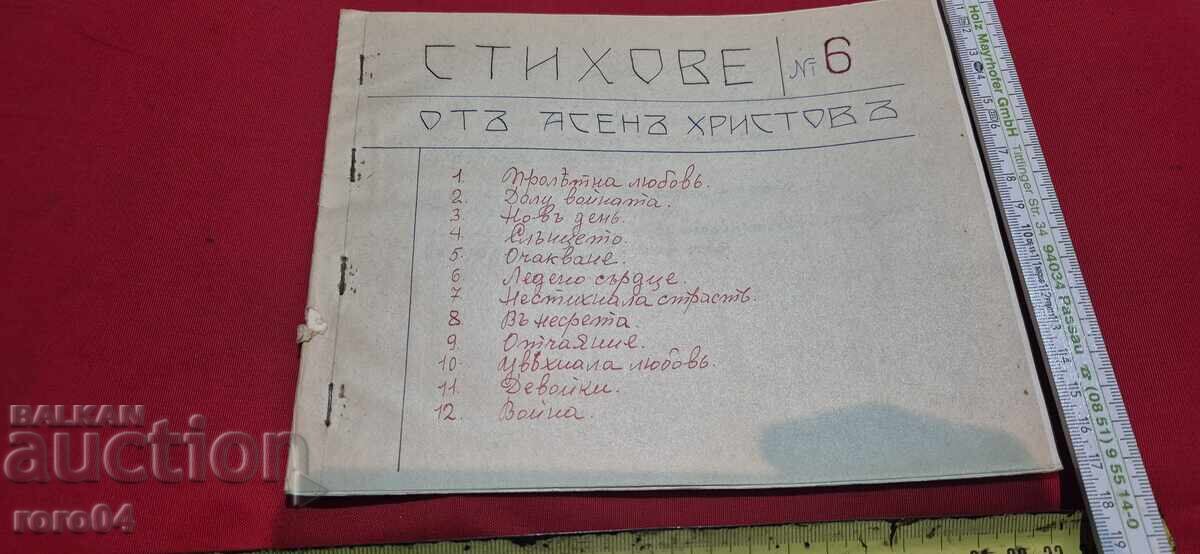 СТИХОВЕ № 6
ОТЪ АСЕНЪ ХРИСТОВЪ
1. Пролѣтна любовь.
2. Долу войната.
3. Новъ день.
4. Слънцето.
5. Очакване.
6. Ледено сърдце.
7. Нестихнала страсть.
8. Въ несрета.
9. Отчаяние.
10. Цвѣхнала любовь.
11. Девойки.
12. Война.
Holz Mayrhofer GmbH Tittlinger Str. 34 94034 Passau ☎ (08 51) 9 55 14-0
BALKAN
auction
roro04